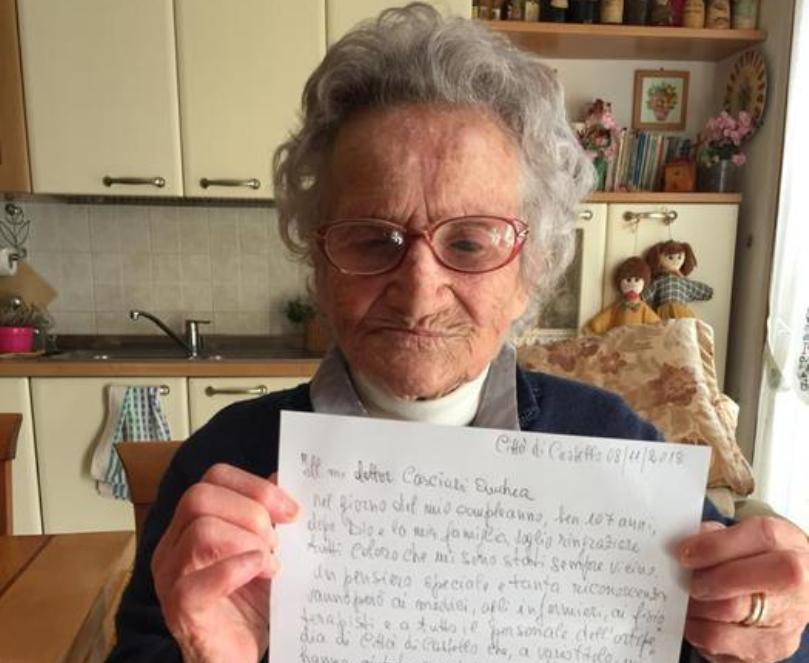 Città di Castello 08/11/2018
Ill. mo dottor Casciari Andrea
nel giorno del mio compleanno, ben 107 anni,
dopo Dio e la mia famiglia, voglio ringraziare
tutti coloro che mi sono stati sempre vicino.
Un pensiero speciale e tanta riconoscenza
vanno però ai medici, agli infermieri, ai fisio
terapisti e a tutto il personale dell'ortope
dia di Città di Castello che, a vario titolo,
hanno